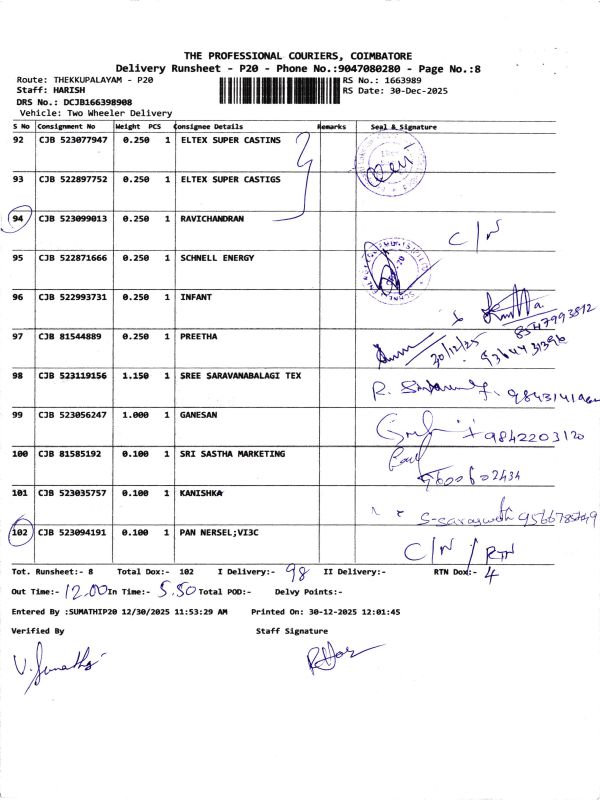 THE PROFESSIONAL COURIERS, COIMBATORE
Delivery Runsheet - P20 - Phone No.:9047080280 - Page No.:8
Route: THEKKUPALAYAM - P20 RS No.: 1663989
Staff: HARISH RS Date: 30-Dec-2025
DRS No.: DCJB166398908
Vehicle: Two Wheeler Delivery
S No Consignment No Weight PCS Consignee Details Remarks Seal & Signature
92 CJB 523077947 0.250 1 ELTEX SUPER CASTINS
93 CJB 522897752 0.250 1 ELTEX SUPER CASTIGS
94 CJB 523099013 0.250 1 RAVICHANDRAN C/N
95 CJB 522871666 0.250 1 SCHNELL ENERGY
96 CJB 522993731 0.250 1 INFANT 8547993812
97 CJB 81544889 0.250 1 PREETHA 30/12/25 9364431396
98 CJB 523119156 1.150 1 SREE SARAVANABALAGI TEX R.
99 CJB 523056247 1.000 1 GANESAN 9842203120
100 CJB 81585192 0.100 1 SRI SASTHA MARKETING 9600602434
101 CJB 523035757 0.100 1 KANISHKA
102 CJB 523094191 0.100 1 PAN NERSEL;VI3C C/N / RTN
Tot. Runsheet:- 8 Total Dox:- 102 I Delivery:- 98 II Delivery:- RTN Dox:- 4
Out Time:- 12.00 In Time:- 5.50 Total POD:- Delvy Points:-
Entered By :SUMATHIP20 12/30/2025 11:53:29 AM Printed On: 30-12-2025 12:01:45
Verified By Staff Signature
V. Sumathi